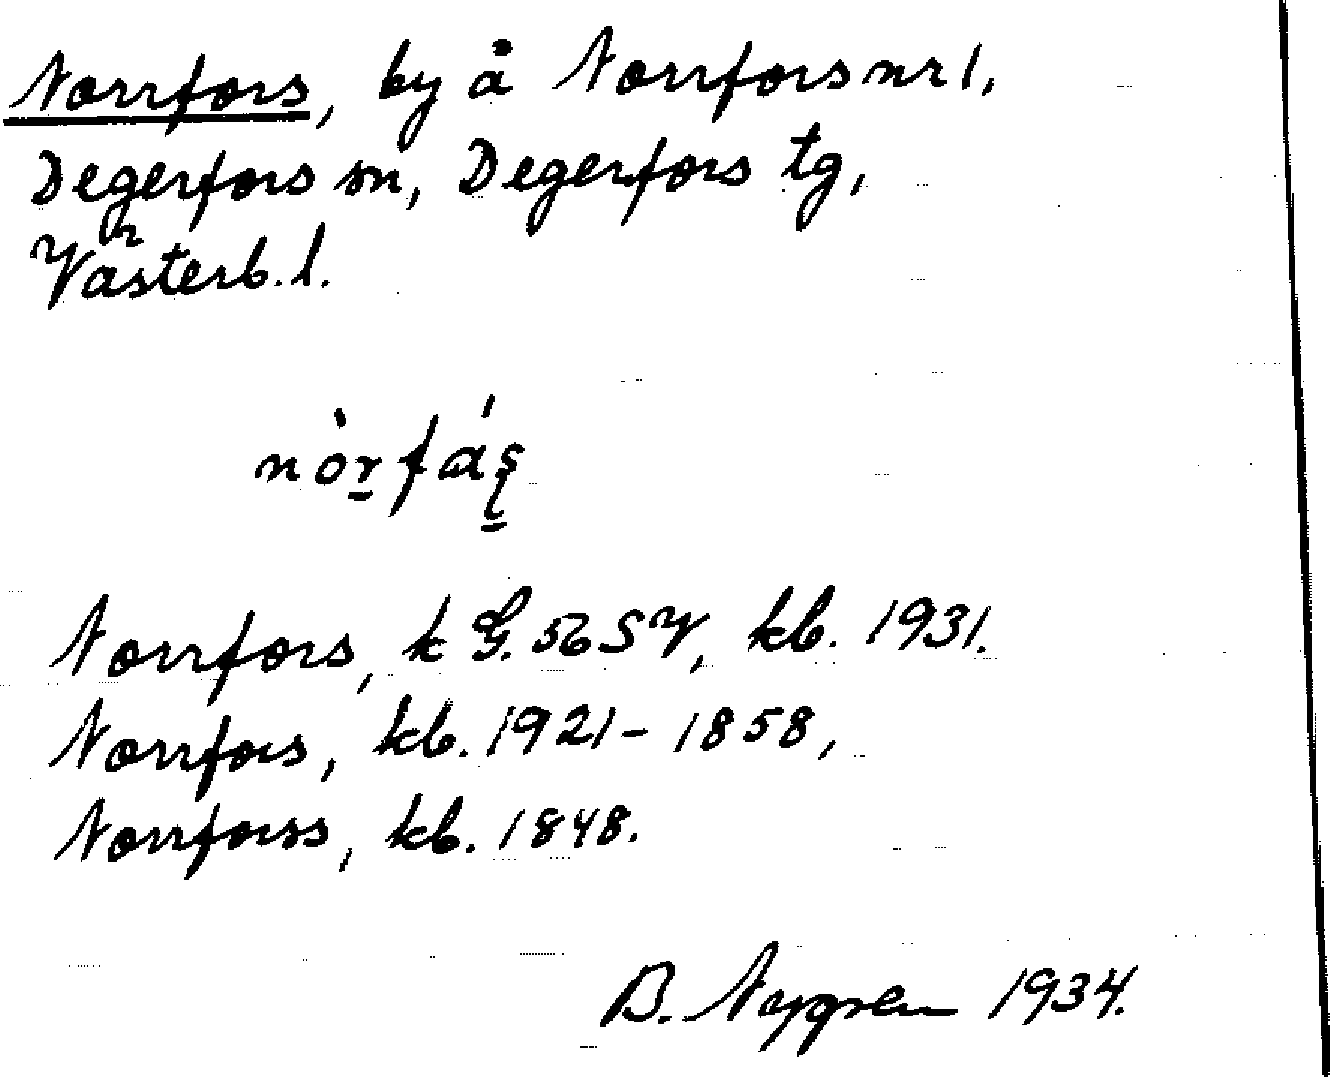 Norrfors, by å Norrfors nr 1,
Degerfors sn, Degerfors tg,
Västerb. l.
nòrfás̨
Norrfors, k G. 56 SV, kb. 1931.
Norrfors, kb. 1921 - 1858,
Norrforss, kb. 1848.
B. Nygren 1934.